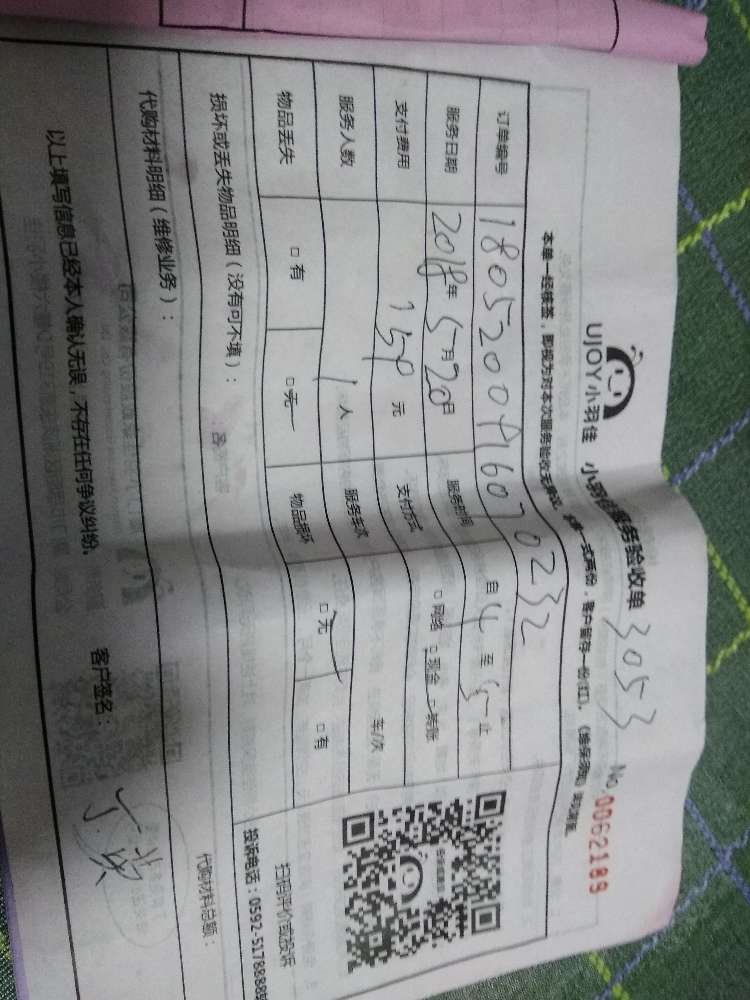 UJOY小羽佳 小羽佳服务验收单 3053 No.0062189
本单一经核签，即视为对本次服务验收无异议。
一式两份，客户留存一份(红)，
订单编号 180520091607 0232
服务日期 2018年5月20日 服务时间 自4至5止
支付费用 159元 支付方式 □网络 □现金 □转账
服务人数 1人 服务车次 车/次
物品丢失 □有 □无 物品损坏 □无 □有
损坏或丢失物品明细（没有可不填）：
代购材料明细（维修业务）： 代购材料总额：
扫码评价或投诉
投诉电话：0592-5178888
以上填写信息已经本人确认无误，不存在任何争议纠纷。 客户签名：